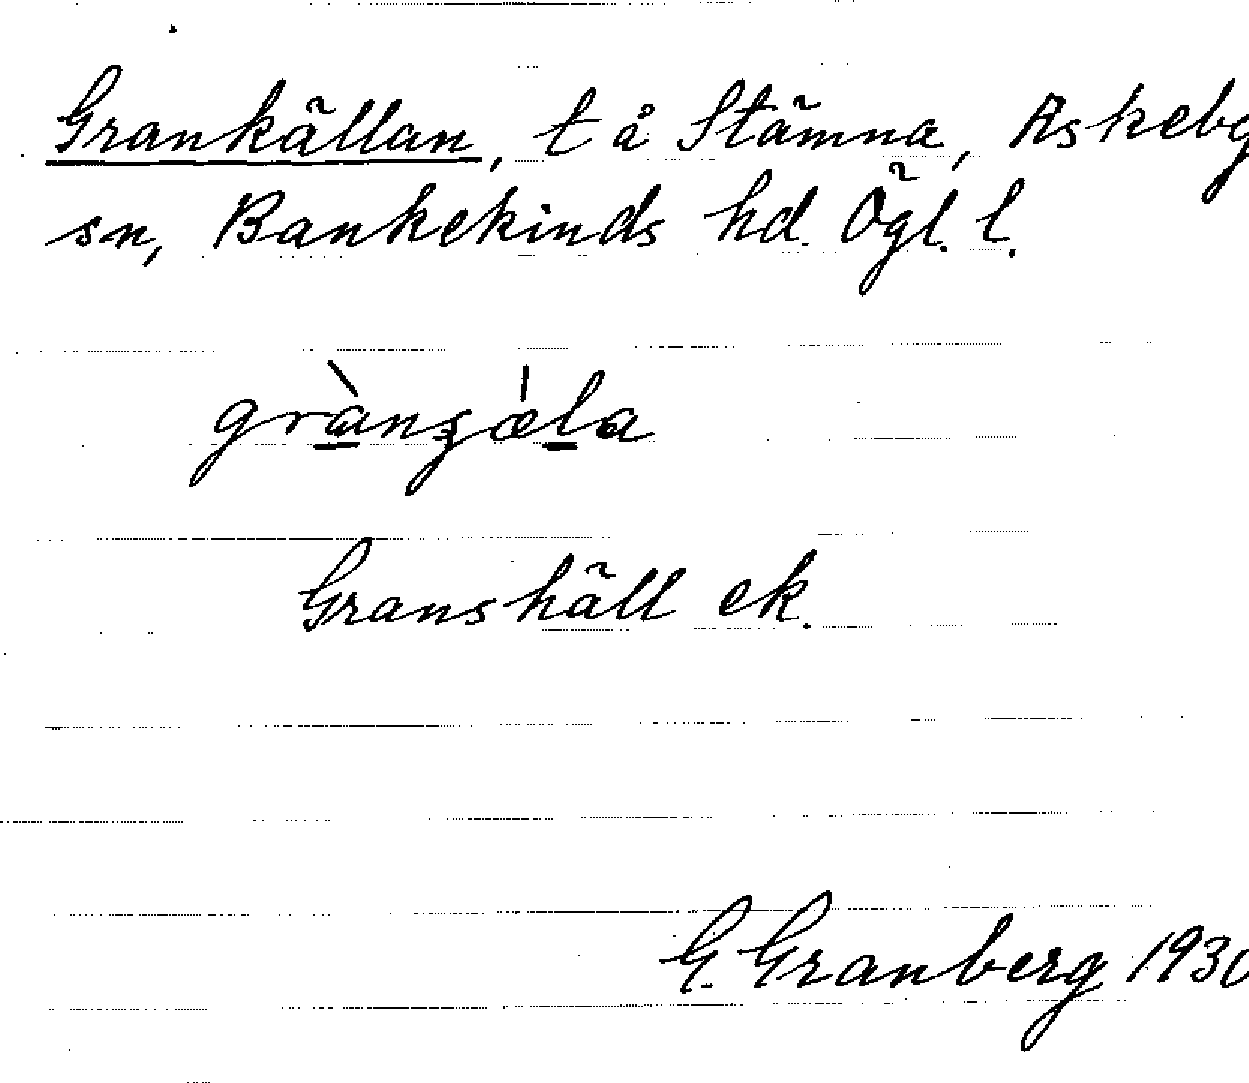 Grankällan, t å Stämna, Askeby
sn, Bankekinds hd. Ögl. l.
grànʒæ̍la
Granskäll ek.
G. Granberg 1930